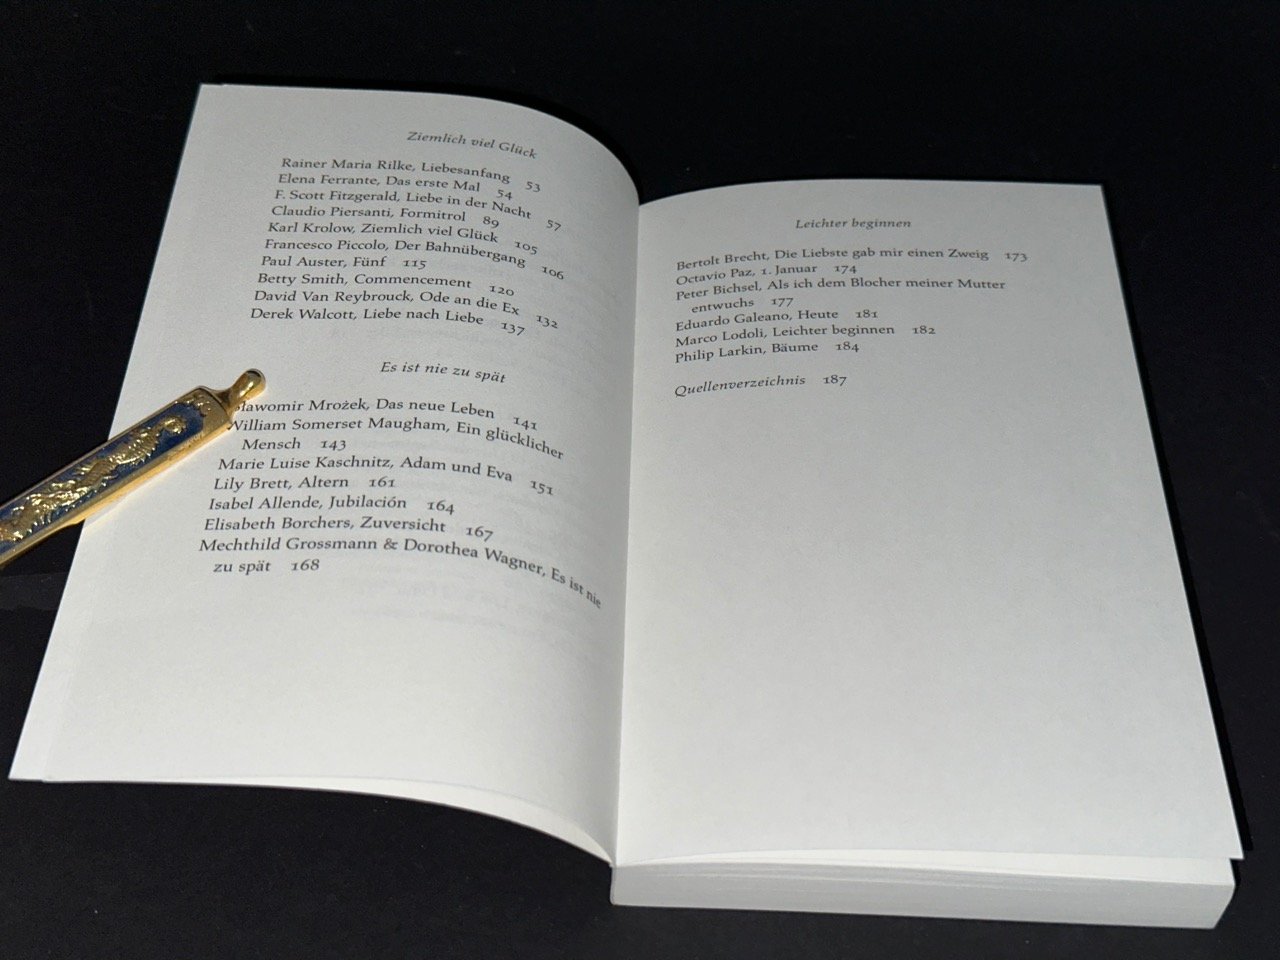 Ziemlich viel Glück
Rainer Maria Rilke, Liebesanfang 53
Elena Ferrante, Das erste Mal 54
F. Scott Fitzgerald, Liebe in der Nacht 57
Claudio Piersanti, Formitrol 89
Karl Krolow, Ziemlich viel Glück 105
Francesco Piccolo, Der Bahnübergang 106
Paul Auster, Fünf 115
Betty Smith, Commencement 120
David Van Reybrouck, Ode an die Ex 132
Derek Walcott, Liebe nach Liebe 137
Es ist nie zu spät
Sławomir Mrożek, Das neue Leben 141
William Somerset Maugham, Ein glücklicher
Mensch 143
Marie Luise Kaschnitz, Adam und Eva 151
Lily Brett, Altern 161
Isabel Allende, Jubilación 164
Elisabeth Borchers, Zuversicht 167
Mechthild Grossmann & Dorothea Wagner, Es ist nie
zu spät 168
Leichter beginnen
Bertolt Brecht, Die Liebste gab mir einen Zweig 173
Octavio Paz, 1. Januar 174
Peter Bichsel, Als ich dem Blocher meiner Mutter
entwuchs 177
Eduardo Galeano, Heute 181
Marco Lodoli, Leichter beginnen 182
Philip Larkin, Bäume 184
Quellenverzeichnis 187